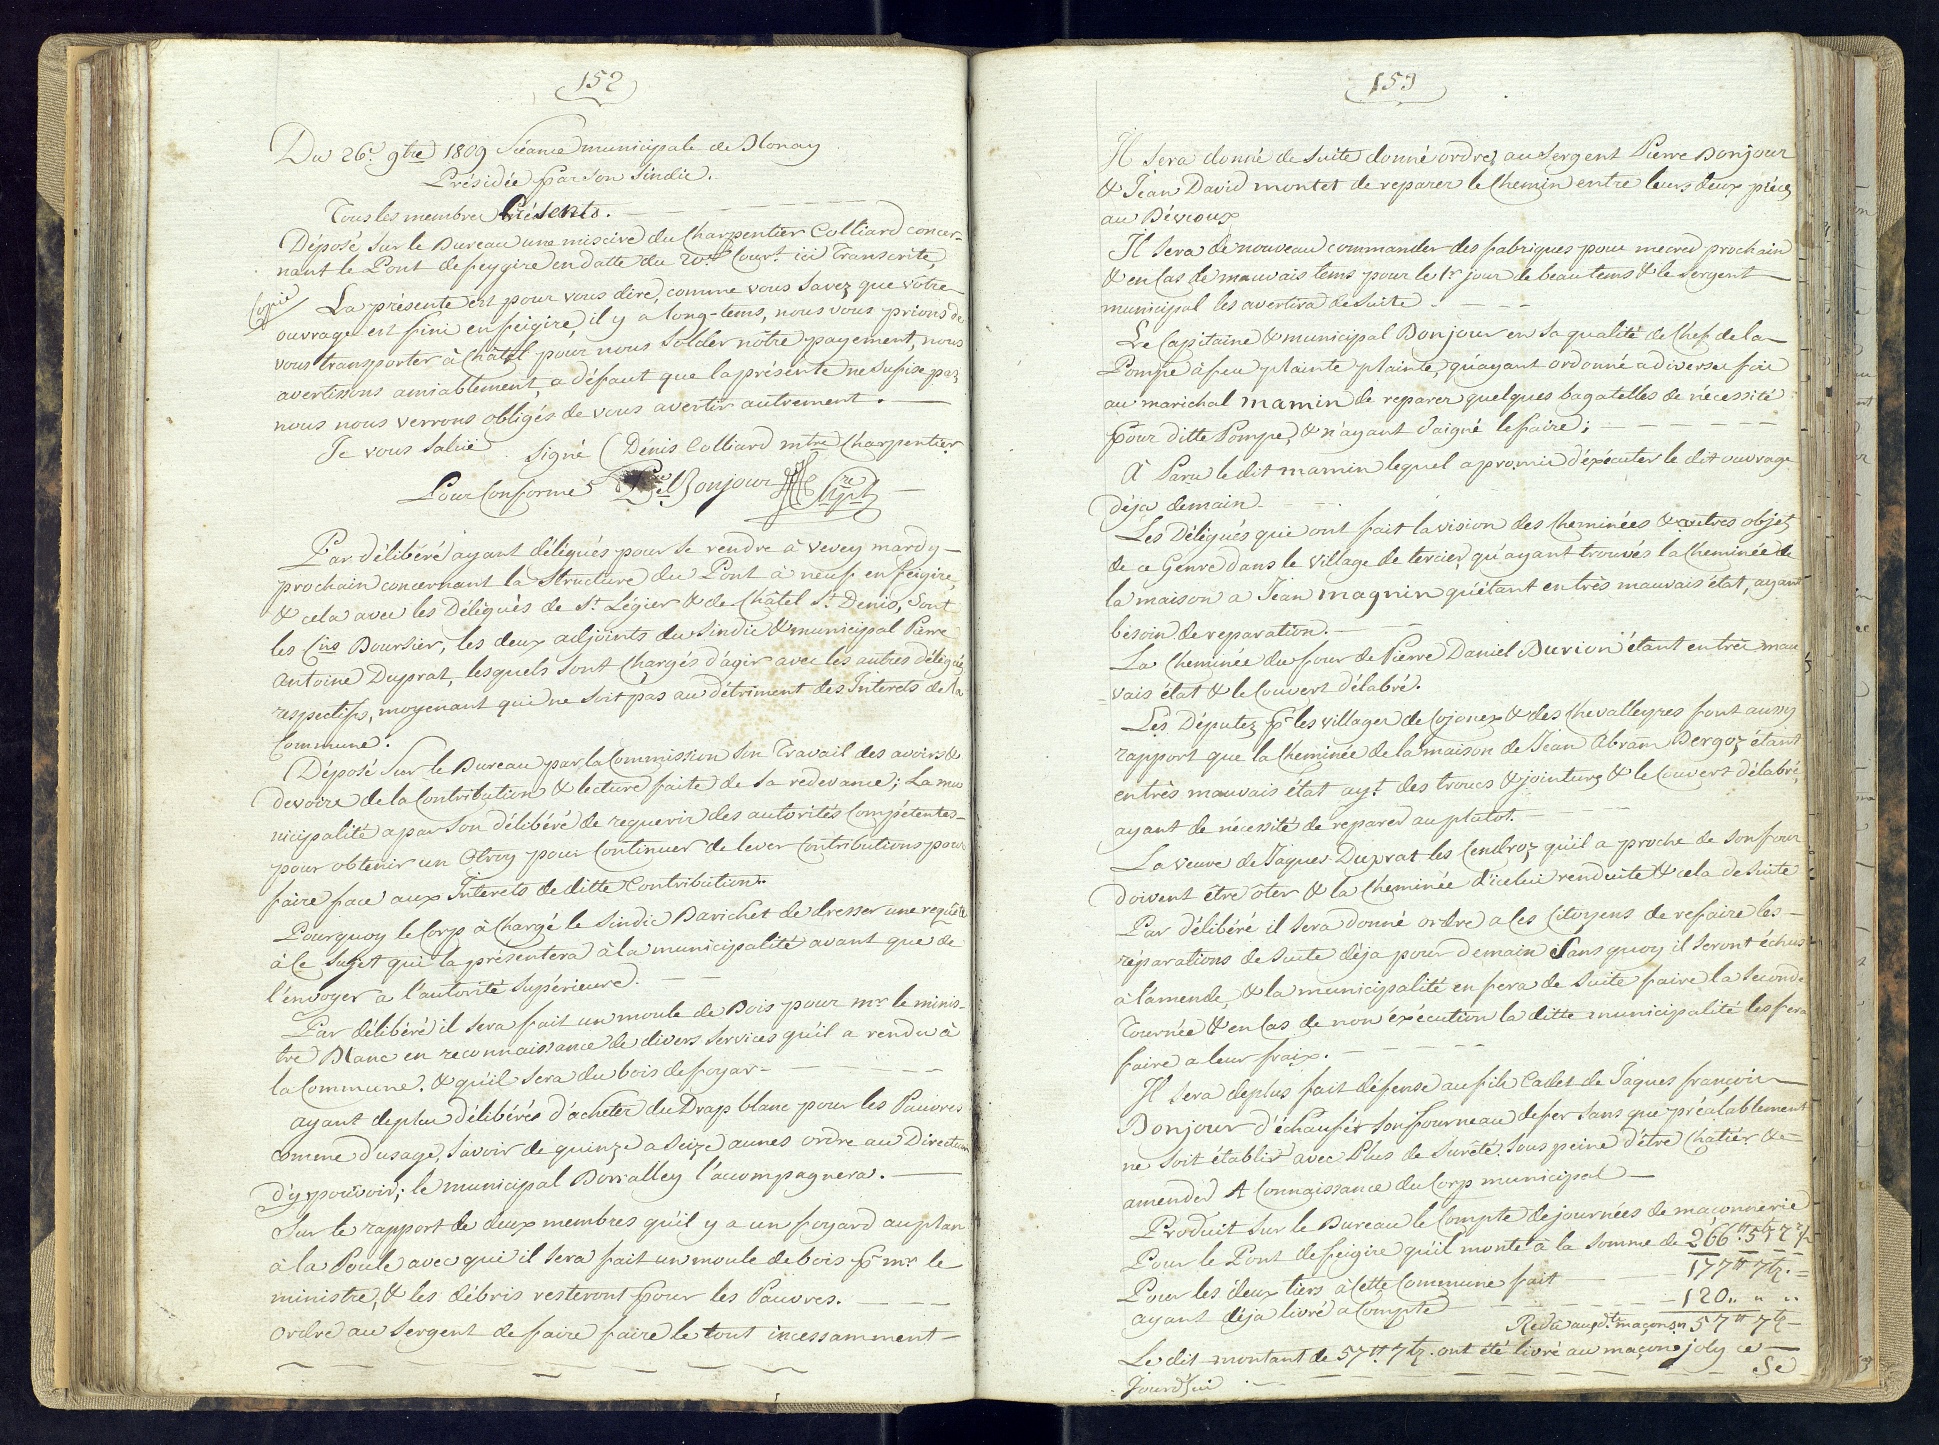 152
Du 26.e 9bre 1809 Séance municipale de Blonay
Présidée par son Sindic.
Tous les membres Présents.
Déposé sur le Bureau une miscive du Charpentier Colliard concer-
nant le Pont de feygire en datte du 20.e Court. ici Transcrite,
Copie
La présente est pour vous dire, comme vous savez que vôtre
ouvrage est fini en feigire, il y a long-tems, nous vous prions de
vous transporter à Châtel pour nous solder nôtre payement, nous
avertissons amiablement, a défaut que la présente ne sufise pas
nous nous verrons obligés de vous avertir autrement.
Je vous Salue. Signé (Dénis Colliard mtre Charpentier
Pour Conforme Bonjour
Par délibéré ayant délégués pour se rendre à Vevey mardy
prochain concernant la Structure du Pont à neuf en feigire,
& cela avec les Délégués de St. Légier & de Châtel St. Denis, Sont
les Cns Boursier, les deux adjoints du Sindic & municipal Pierre
Antoine Duprat, lesquels sont Chargés d'agir avec les autres délégués
respectifs, moyenant qui ne soit pas au détriment des Interets de la
Commune.
Déposé Sur le Bureau par la Commission son Travail des avoirs &
devoirs de la Contribution & lecture faite de sa redevance; La mu
nicipalité a par son délibéré de requerir des autorités Compétentes
pour obtenir un Otroy pour Continuer de lever Contributions pour
faire face aux Interets de ditte Contribution.
Pourquoy le Corps à Chargé le Sindic Barichet de dresser une requête
à ce sujet qui la présentera à la municipalité avant que de
l'envoyer a l'autorité Supérieure.
Par délibéré il sera fait un moule de Bois pour mr. le minis-
tre Blanc en reconnaissance de divers services qu'il a rendu à
la Commune. & qu'il sera du bois de foyar-
ayant de plus délibérés d'acheter du Drap blanc pour les Pauvres
comme d'usage, savoir de quinze a seize aunes ordre au Directeur
d'y pourvoir; le municipal Borralley l'acompagnera.
Sur le rapport de deux membres qu'il y a un foyard au plan
à la Poule avec qui il sera fait un moule de bois pr. mr. le
ministre, & les débris resteront pour les Pauvres.
Ordre au Sergent de faire faire le tout incessamment
153
Il sera donné de suite donné ordre, au sergent Pierre Bonjour
& Jean David montet de reparer le Chemin entre leurs deux pièces
au Dévioux
Il sera de nouveau commander des fabriques pour mecred prochain
& en Cas de mauvais tems pour le 1r jour de beau tems & le Sergent
municipal les avertira de suite.
Le Capitaine & municipal Bonjour en sa qualité de Chef de la
Pompe à feu plainte plainte, qu'ayant ordonné a diverses fois
au marichal mamin de reparer quelques bagatelles de nécessité
pour ditte Pompe, & n'ayant daigné le faire;
A Paru le dit mamin lequel a promis d'éxécuter le dit ouvrage
déja demain.
Les Délégués que ont fait la vision des Cheminées & autres objets
de ce Genre dans le village de tercier, qu'ayant trouvés la Cheminée de
la maison a Jean magnin qu'étant en très mauvais état, ayant
besoin de reparation.
La Cheminée du four de Pierre Daniel Burion étant en très mau
=vais état & le Couvert délabré.
Les Députez pr. les villages de Cojonex & des Chevalleyres font aussy
rapport que la Cheminée de la maison de Jean Abram Bergoz étant
en très mauvais état ayt. des troucs & jointures & le Couvert délabré,
ayant de nécessité de reparer au plutot.
La veuve de Jaques Duprat les Cendroz qu'il a proche de son four
doivent être oter & la Cheminée d'icelui renduite & cela de suite
Par délibéré il sera donné ordre a ces Citoyens de refaire les
réparations de Suite déja pour demain Sans quoy il seront échus
à l'amende, & la municipalité en fera de Suite faire la seconde
Tournée & en Cas de non éxécution la ditte municipalité les fera
faire a leur fraix.
Il sera de plus fait défense au fils Cadet de Jaques françois
Bonjour d'échaufer son fourneau de fer sans que préalablement
ne soit établi avec Plus de Sureté. Sous peine d'être Chatiér &
amender A Connaissance du Corps municipal
Produit Sur le Bureau le Compte de journées de maçonnerie
Pour le Pont de feigire qu'il monte à la somme de 266
Pour les deux tiers à Cette Commune fait 177
ayant déja livré a Compte 120 „ „ „
57
Le dit montant de 57 ont été livré au maçons joly ce
Jourd'hui
Se